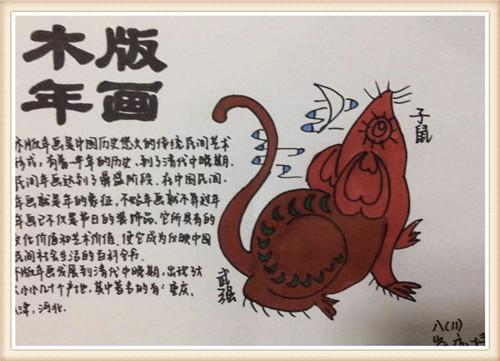 木版
年画
木版年画是中国历史悠久的传统民间艺术
形式,有着一千年的历史,到了清代中晚期.
民间年画达到了鼎盛阶段.在中国民间.
年画就是年的象征,不贴年画就不算过年
年画它不仅是节日的装饰品,它所具有的
文化价值和艺术价值,使它成为反映中国
民间社会生活的百科全书.
木版年画发展到清代中晚期,出现
大小小几十个产地,其中著名的有:重庆,
天津,河北.
子鼠
武强
八(11)